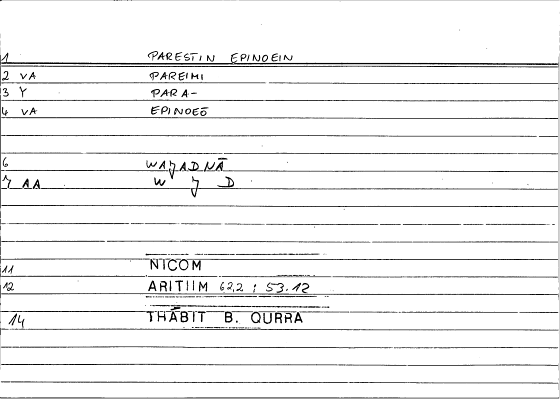 1 PARESTIN EPINOEIN
2 VA PAREIMI
3 Y PARA-
4 VA EPINOEŌ
6 WAJADNĀ
7 AA W J D
11 NICOM
12 ARITIIM 62,2 ; 53.12
14 THĀBIT B. QURRA